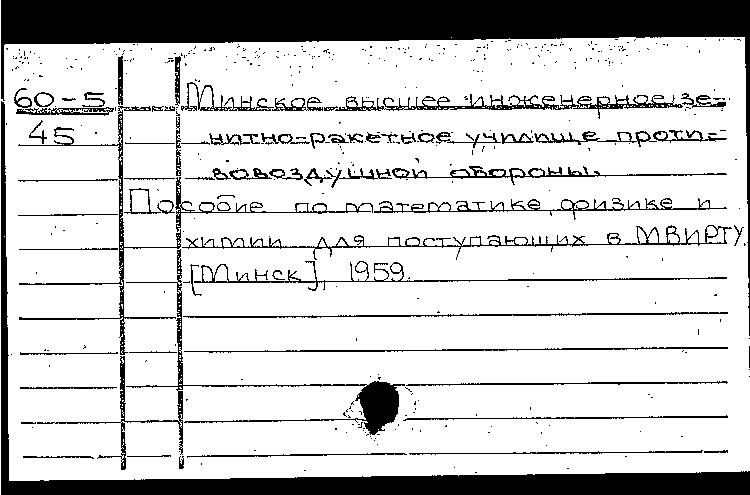 60-5
45
Минское высшее инженерное зе-
нитно-ракетное училище проти-
вовоздушной обороны.
Пособие по математике, физике и
химии для поступающих в МВИРТУ.
[Минск], 1959.